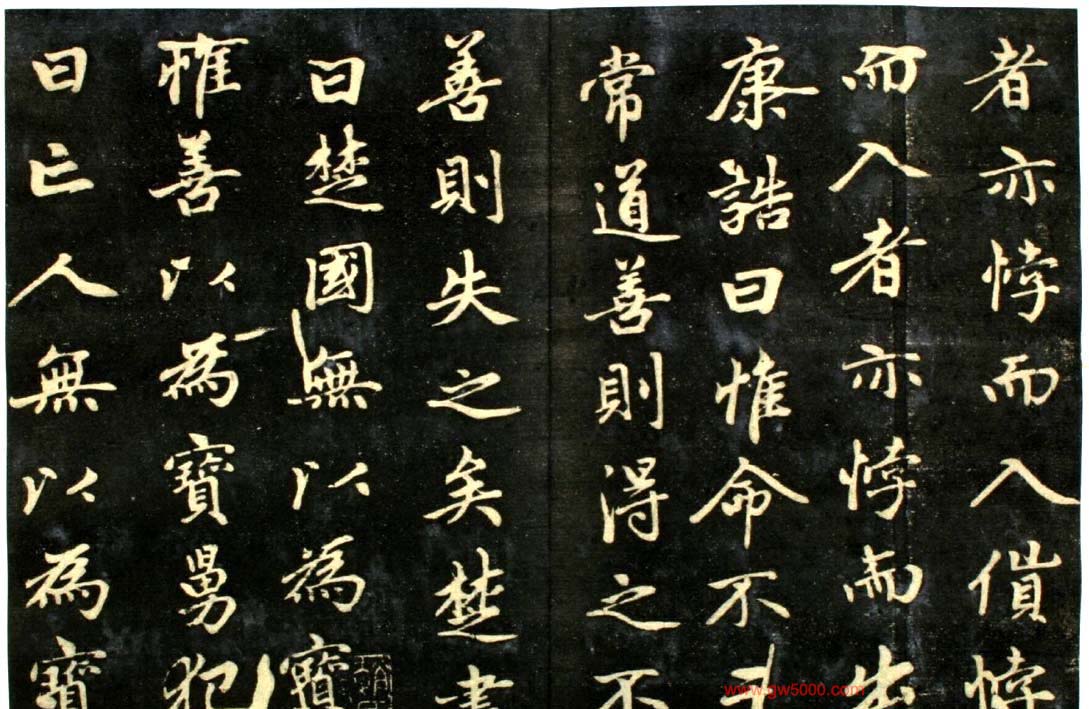 者亦悖而入償悖
而入者亦悖而出
康誥曰惟命不于
常道善則得之不
善則失之矣楚書
曰楚國無以為寶
惟善以為寶舅犯
曰亡人無以為寶
www.gw5000.com